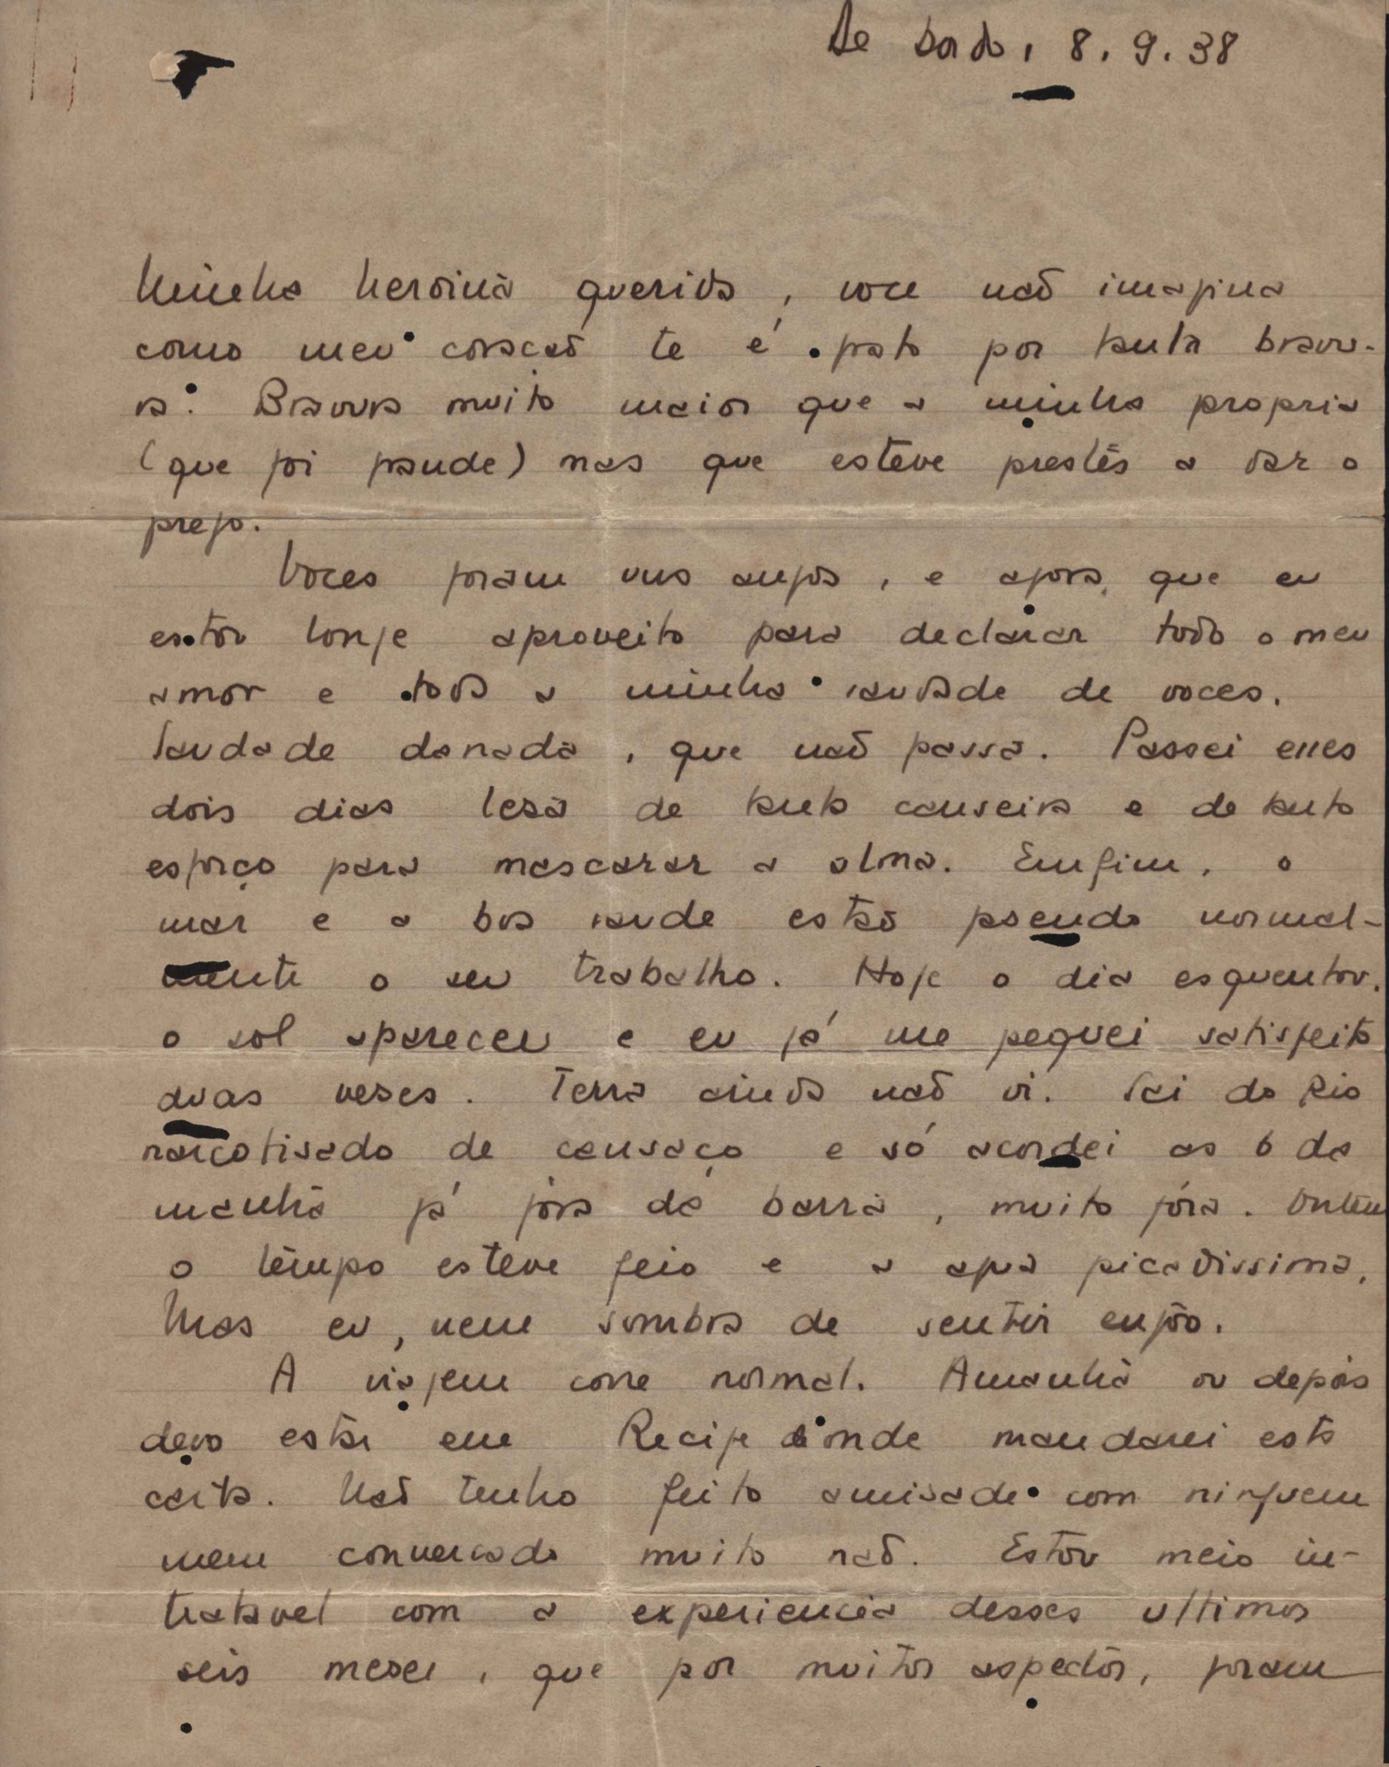 De bordo, 8.9.38
Minha heroina querida, voce naõ imagina
como meu coracaõ te é grato por tanta bravu-
ra. Bravura muito maior que a minha propria
(que foi grande) mas que esteve prestes a dar o
prego.
Voces foram uns anjos, e agora que eu
estou longe aproveito para declarar todo o meu
amor e toda a minha saudade de voces.
Saudade danada, que naõ passa. Passei esses
dois dias lesa de tanta canseira e de tanto
esforço para mascarar a alma. Emfim, o
mar e a boa saude estaõ fazendo normal-
mente o seu trabalho. Hoje o dia esquentou,
o sol apareceu e eu já me peguei satisfeito
duas veses. Terra ainda naõ vi. Sai do Rio
narcotisado de cansaço e só acordei as 6 da
manhã já fóra da barra, muito fóra. Ontem
o tempo esteve feio e a agua picadissima,
Mas eu, nem sombra de sentir enjôo.
A viajem corre normal. Amanhã ou depois
devo estar em Recife donde mandarei esta
carta. Naõ tenho feito amisade com ninguem
nem conversado muito naõ. Estou meio in-
tratavel com a experiencia desses ultimos
seis meses, que por muitos aspectos, foram